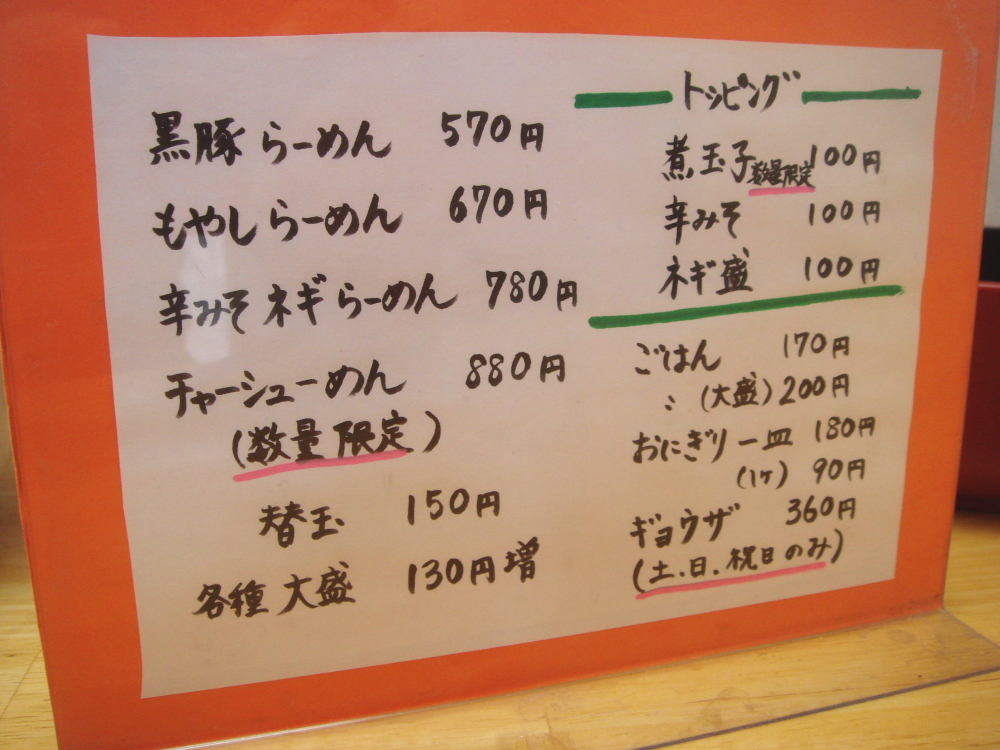 黒豚らーめん 570円
もやしらーめん 670円
辛みそネギらーめん 780円
チャーシューめん 880円
(数量限定)
替玉 150円
各種大盛 130円増
トッピング
煮玉子 数量限定 100円
辛みそ 100円
ネギ盛 100円
ごはん 170円
〃 (大盛) 200円
おにぎり一皿 180円
(1ヶ) 90円
ギョウザ 360円
(土.日.祝日のみ)